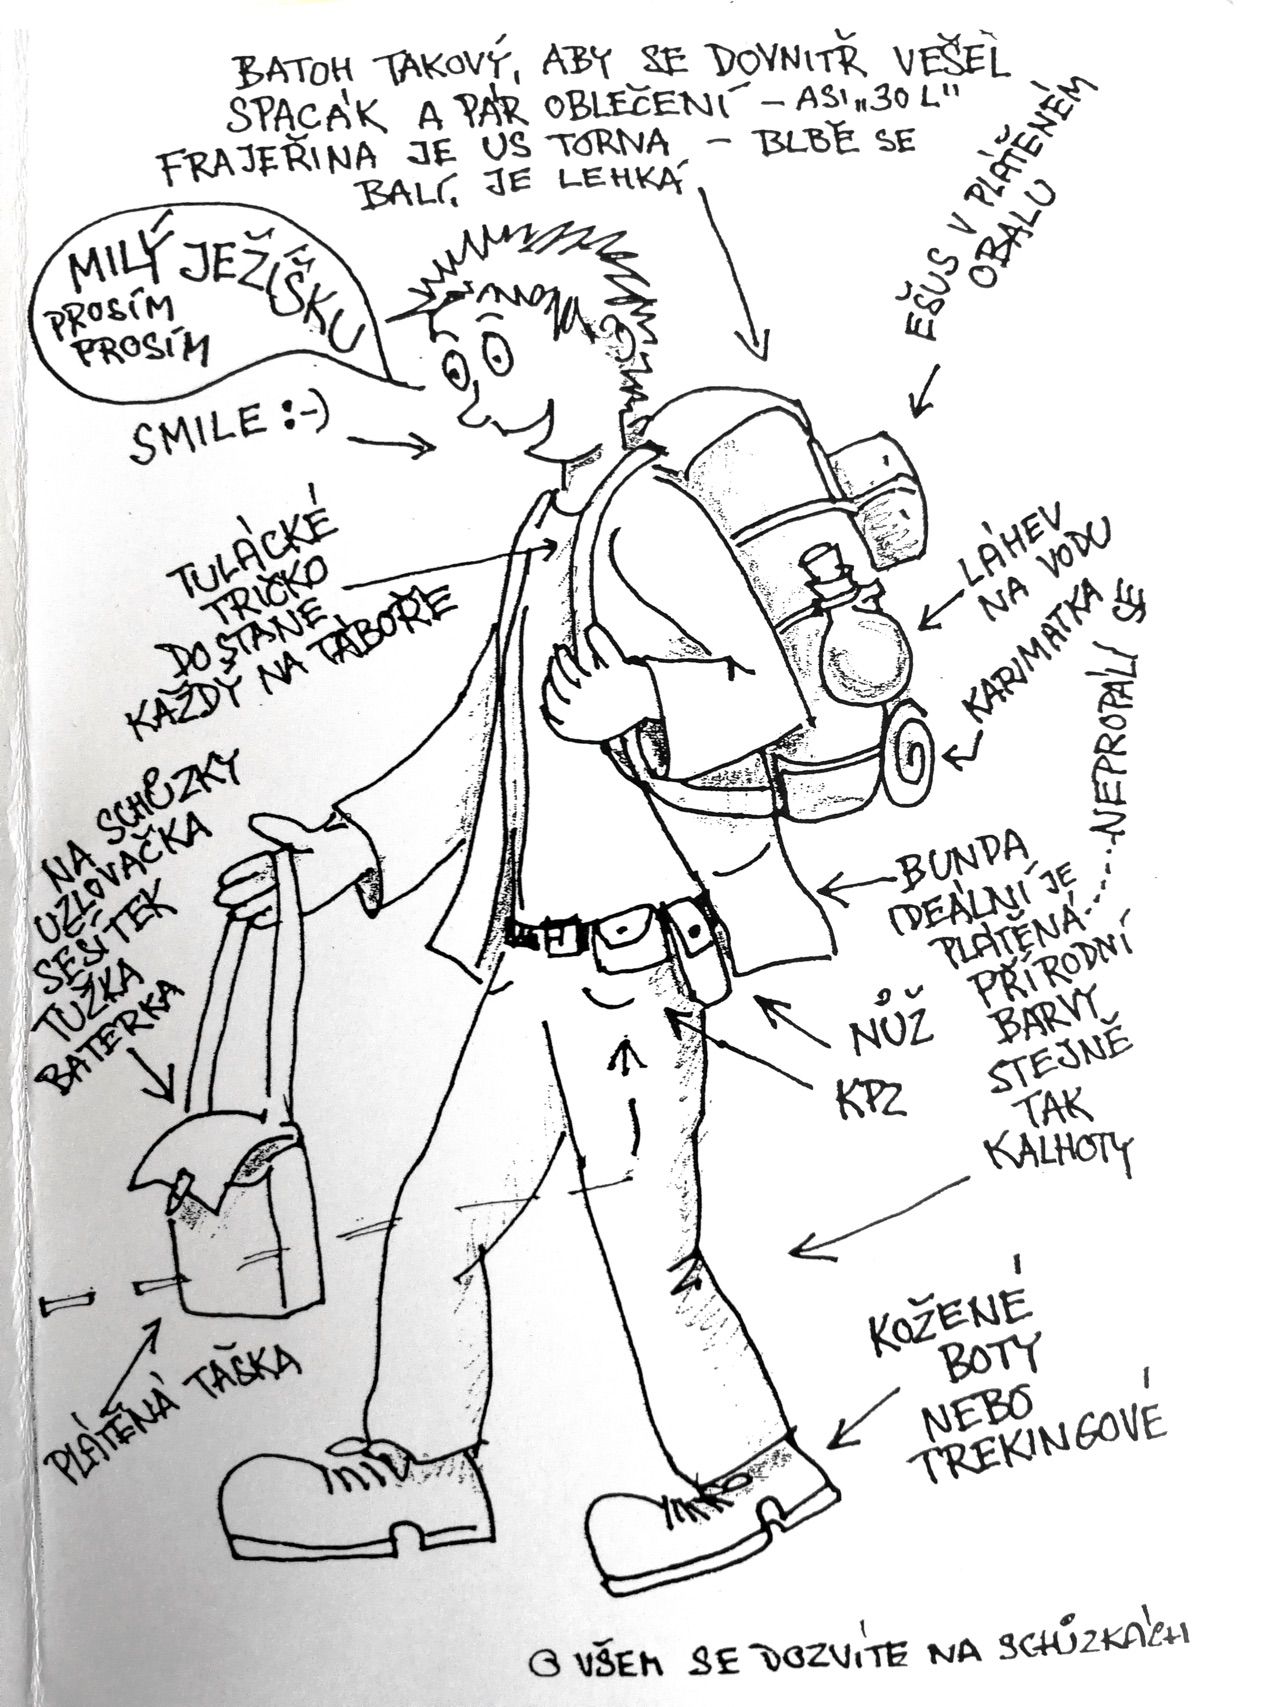 BATOH TAKOVÝ, ABY SE DOVNITŘ VEŠEL
SPACÁK A PÁR OBLEČENÍ – ASI „30 L"
FRAJEŘINA JE US TORNA – BLBĚ SE
BALÍ, JE LEHKÁ
EŠUS V PLÁTĚNÉM
OBALU
MILÝ JEŽÍŠKU
PROSÍM
PROSÍM
SMILE :-)
TULÁCKÉ
TRIČKO
DOSTANE
KAŽDÝ NA TÁBOŘE
LÁHEV
NA VODU
KARIMATKA
NA SCHŮZKY
UZLOVAČKA
SEŠÍTEK
TUŽKA
BATERKA
BUNDA
IDEÁLNÍ JE
PLÁTĚNÁ ..... NEPROPÁLÍ SE
PŘÍRODNÍ
BARVY
STEJNĚ
TAK
KALHOTY
NŮŽ
KPZ
PLÁTĚNÁ TAŠKA
KOŽENÉ
BOTY
NEBO
TREKINGOVÉ
O VŠEM SE DOZVÍTE NA SCHŮZKÁCH